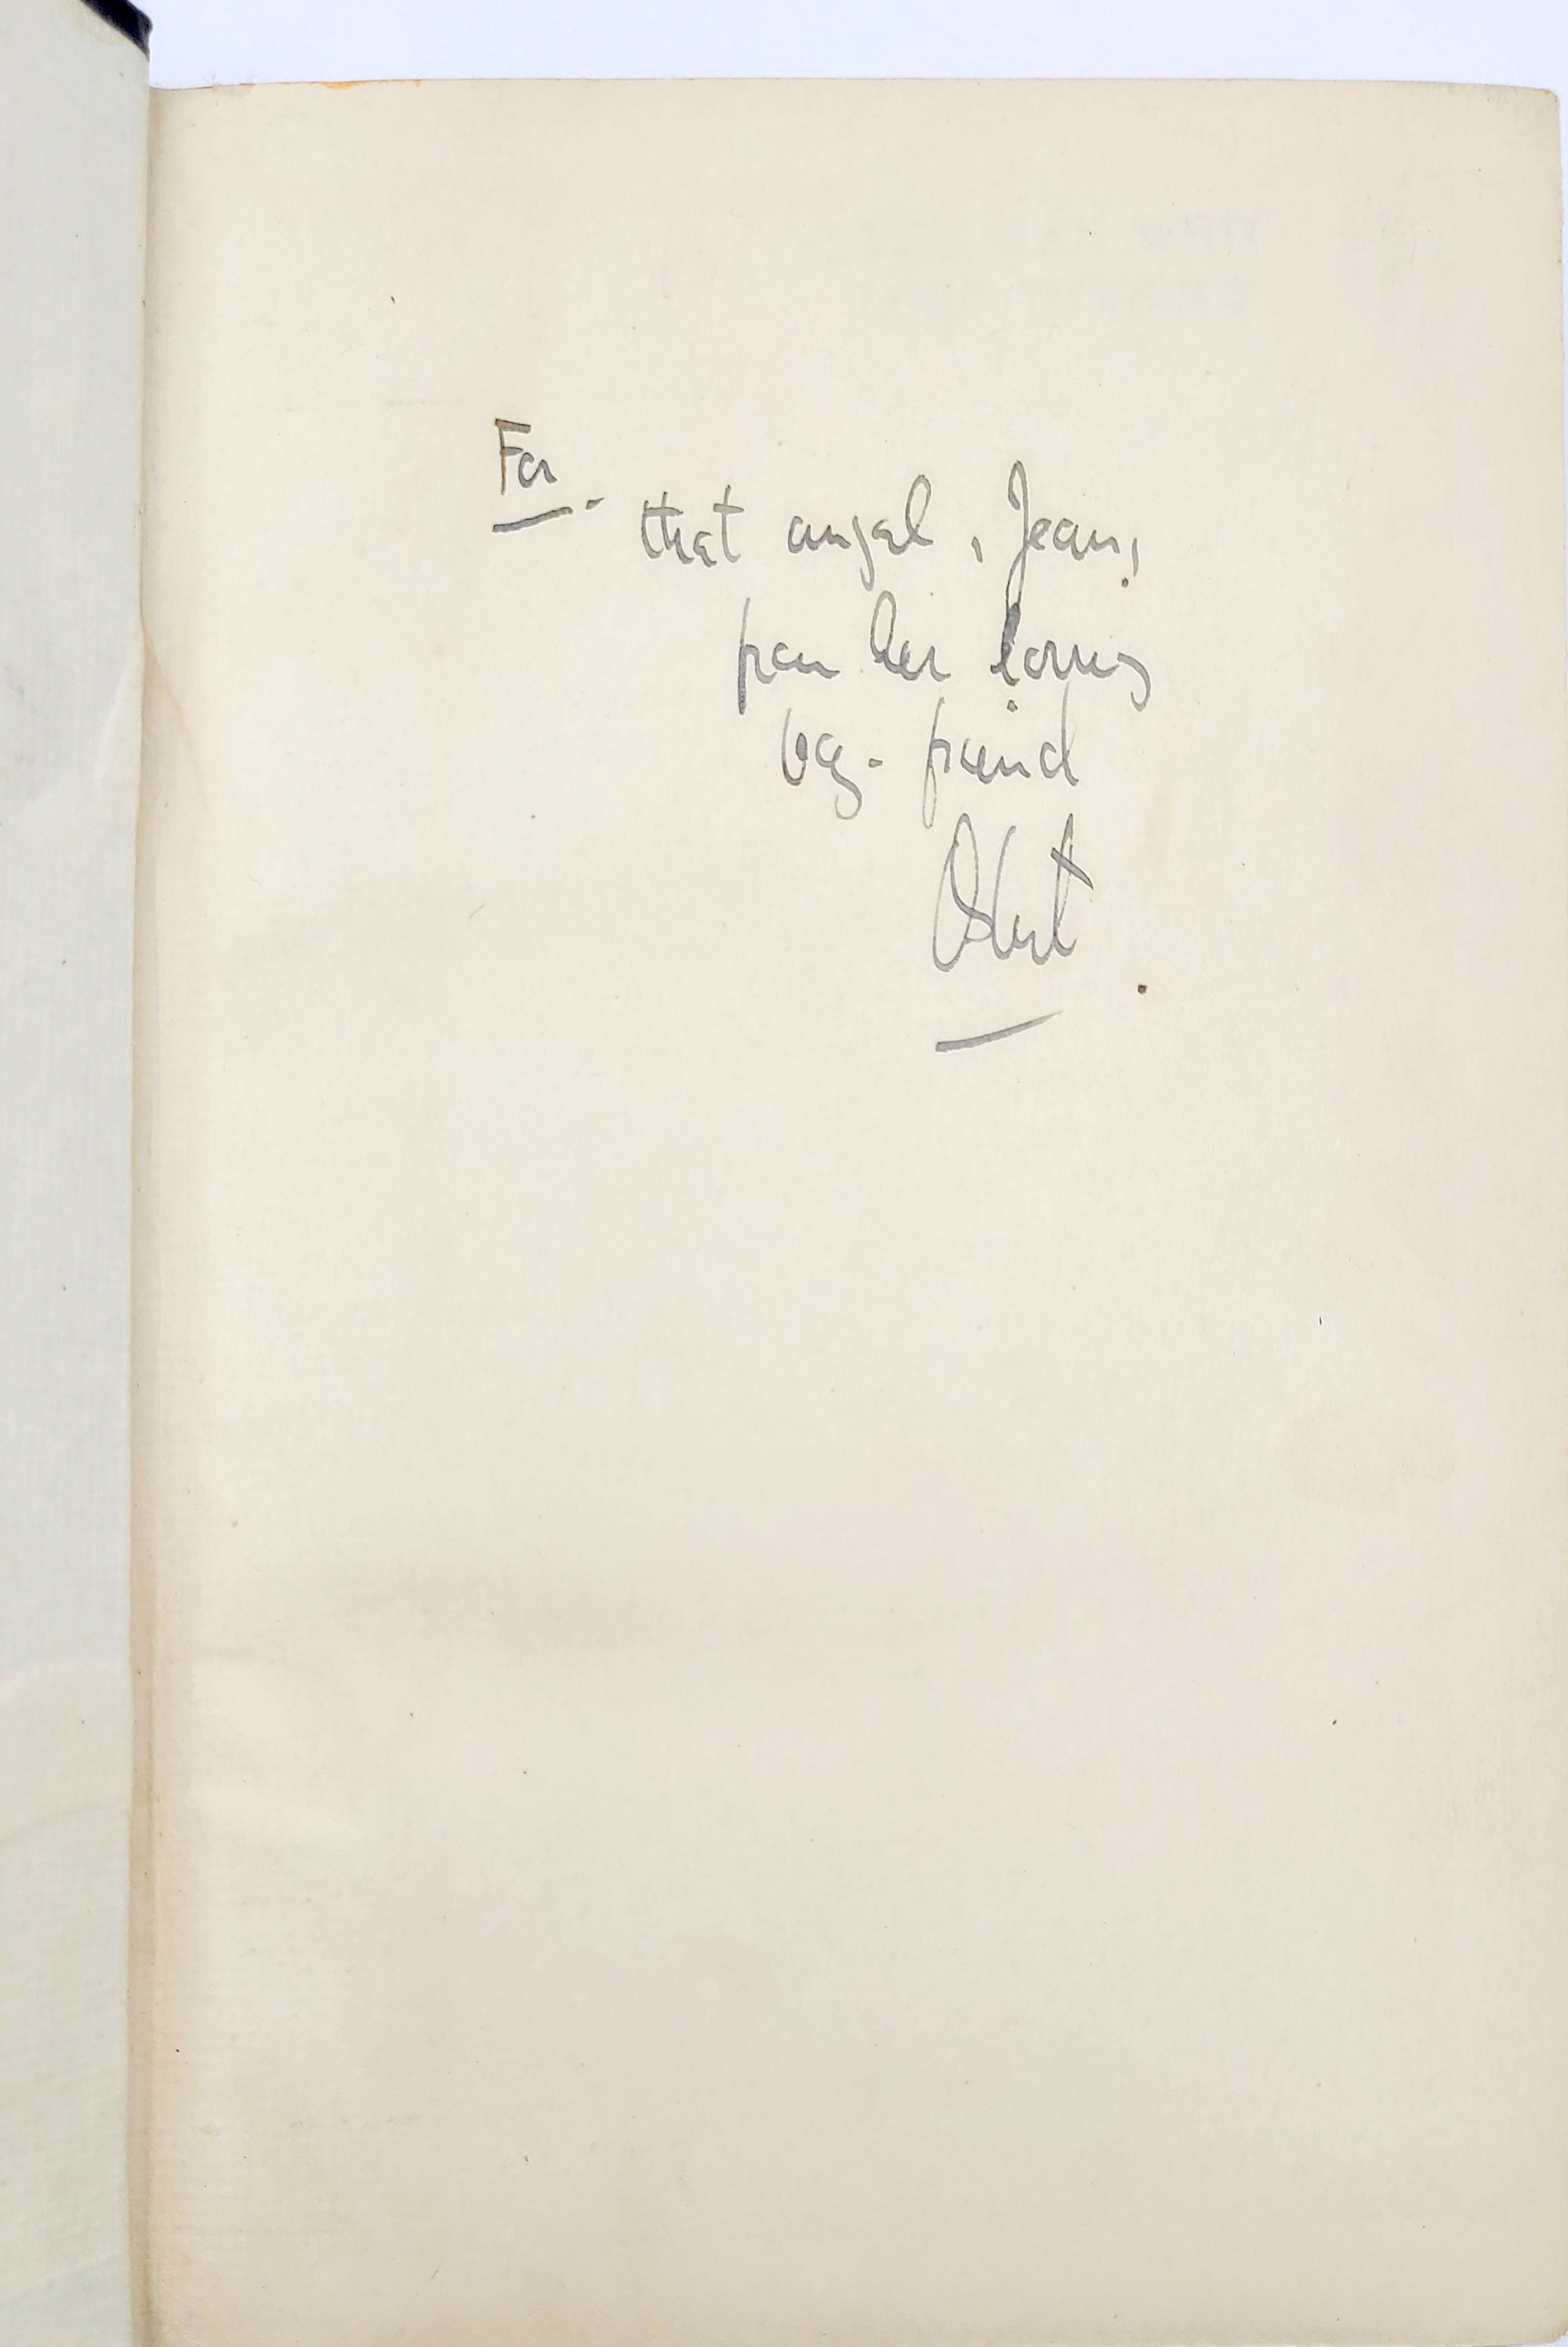 For.
that angel, Jean,
from her loving
boy-friend
Osbert